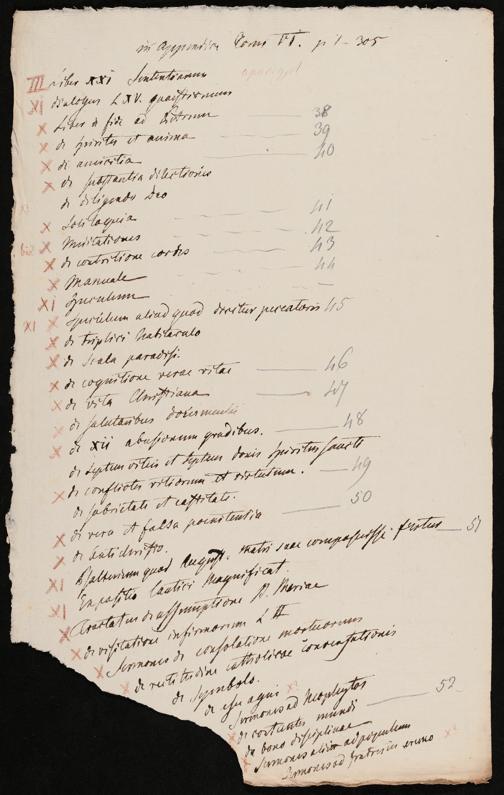 in Appendice Tomi VI. p 1-305
III Liber XXI Sententiarum apocryph
XI dialogus LXV. quaestionum
x Liber de fide ad Petrum 38
x de spiritu et anima 39
x de amicitia 40
x de substantia dilectionis
de diligendo Deo
x Soliloquia 41
x Meditationes 42
x de contritione cordis 43
x Manuale 44
XI Speculum
XI x speculum aliud quod dicitur peccatoris 45
x de triplici habitaculo
x de Scala paradisi.
x de cognitione verae vitae 46
x de vita Christiana 47
x de salutaribus documentis
x de XII abusionum gradibus. 48
de septem vitiis et septem donis spiritus sancti
x de conflictu vitiorum et virtutum. 49
de sobrietate et castitate.
x de vera et falsa poenitentia 50
x de Antichristo.
Psalterium quod August. matri suae composuisse fertur 51
XI Expositio Cantici Magnificat.
XI Tractatus de assumptione B. Mariae
x de visitatione infirmorum L II
x Sermones de consolatione mortuorum
x de rectitudine catholicae conversationis
x de Symbolo.
de esu agni x
Sermones ad Neophytos
x de creatione mundi 52
x de bono disciplinae
x Sermones alii ad populum
Sermones ad fratres in eremo x